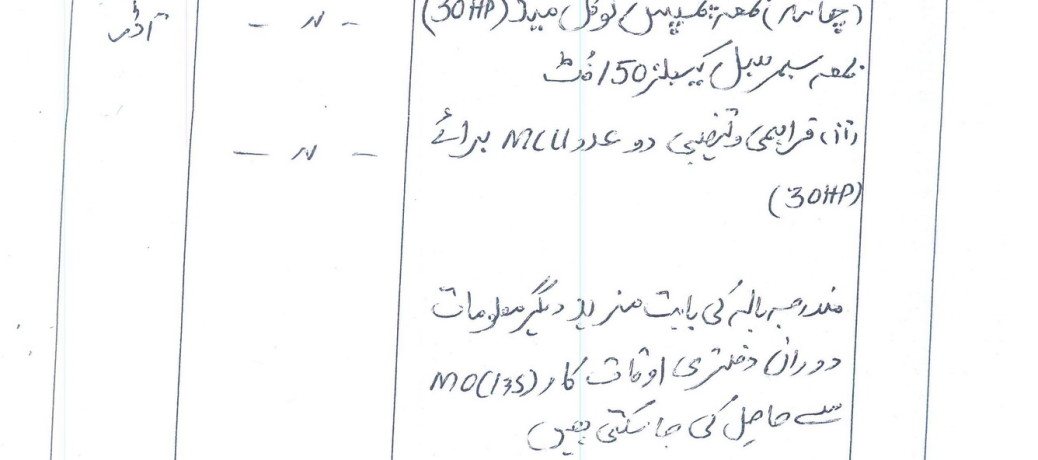 (چائنہ) بمعہ پمپس لوکل میڈ (30HP) - 〃 - آڈر
بمعہ سبمرسبل کیبلز 150 فٹ
(ii) فراہمی وتنصیبی دو عدد MCU برائے - 〃 -
(30HP)
مندرجہ بالہ کی بابت مزید دیگر معلومات
دوران دفتری اوقات کار MO(I&S)
سے حاصل کی جا سکتی ہیں